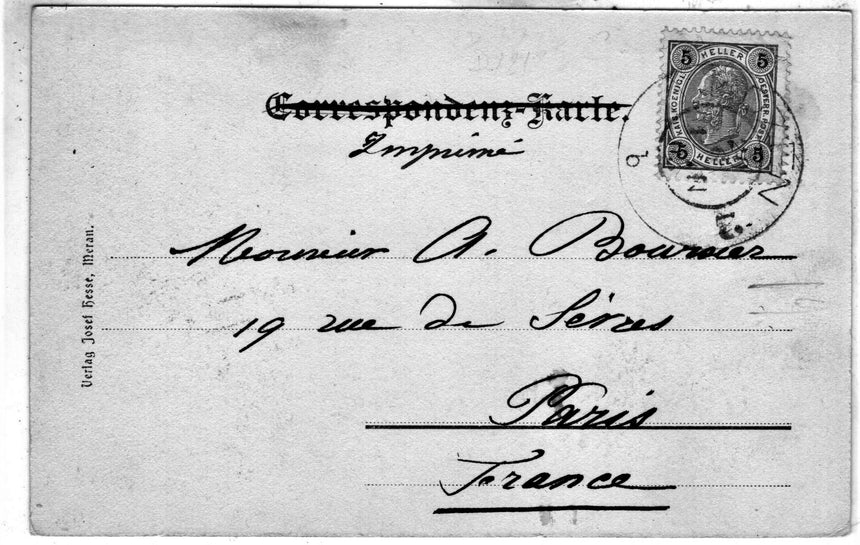 Correspondenz-Karte.
Imprimé
5 HELLER 5
KAIS. KOENIGL. OESTERR. POST
5 HELLER 5
Monsieur A. Bournier
19 rue de Sèvres
Paris
France
Verlag Josef Hesse, Meran.